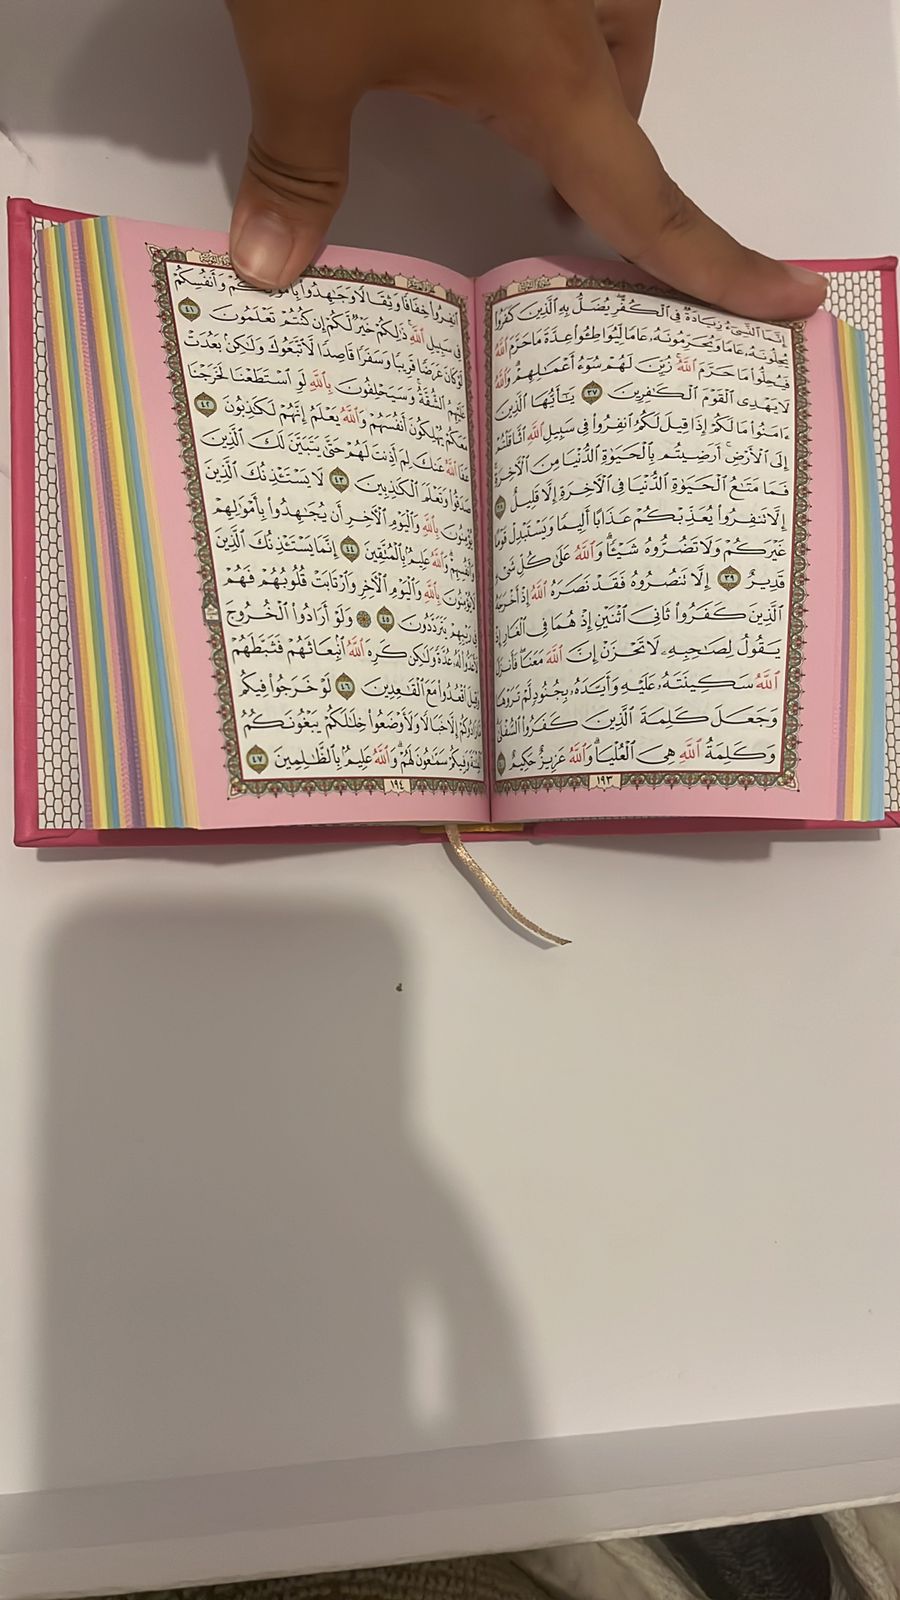 سورة التوبة
إِنَّمَا ٱلنَّسِىٓءُ زِيَادَةٌ فِى ٱلْكُفْرِ يُضَلُّ بِهِ ٱلَّذِينَ كَفَرُوا۟
يُحِلُّونَهُۥ عَامًا وَيُحَرِّمُونَهُۥ عَامًا لِّيُوَاطِـُٔوا۟ عِدَّةَ مَا حَرَّمَ ٱللَّهُ
فَيُحِلُّوا۟ مَا حَرَّمَ ٱللَّهُ ۚ زُيِّنَ لَهُمْ سُوٓءُ أَعْمَـٰلِهِمْ ۗ وَٱللَّهُ
لَا يَهْدِى ٱلْقَوْمَ ٱلْكَـٰفِرِينَ ٣٧ يَـٰٓأَيُّهَا ٱلَّذِينَ
ءَامَنُوا۟ مَا لَكُمْ إِذَا قِيلَ لَكُمُ ٱنفِرُوا۟ فِى سَبِيلِ ٱللَّهِ ٱثَّاقَلْتُمْ
إِلَى ٱلْأَرْضِ ۚ أَرَضِيتُم بِٱلْحَيَوٰةِ ٱلدُّنْيَا مِنَ ٱلْـَٔاخِرَةِ ۚ
فَمَا مَتَـٰعُ ٱلْحَيَوٰةِ ٱلدُّنْيَا فِى ٱلْـَٔاخِرَةِ إِلَّا قَلِيلٌ ٣٨
إِلَّا تَنفِرُوا۟ يُعَذِّبْكُمْ عَذَابًا أَلِيمًا وَيَسْتَبْدِلْ قَوْمًا
غَيْرَكُمْ وَلَا تَضُرُّوهُ شَيْـًٔا ۗ وَٱللَّهُ عَلَىٰ كُلِّ شَىْءٍ
قَدِيرٌ ٣٩ إِلَّا تَنصُرُوهُ فَقَدْ نَصَرَهُ ٱللَّهُ إِذْ أَخْرَجَهُ
ٱلَّذِينَ كَفَرُوا۟ ثَانِىَ ٱثْنَيْنِ إِذْ هُمَا فِى ٱلْغَارِ إِذْ
يَقُولُ لِصَـٰحِبِهِۦ لَا تَحْزَنْ إِنَّ ٱللَّهَ مَعَنَا ۖ فَأَنزَلَ
ٱللَّهُ سَكِينَتَهُۥ عَلَيْهِ وَأَيَّدَهُۥ بِجُنُودٍ لَّمْ تَرَوْهَا
وَجَعَلَ كَلِمَةَ ٱلَّذِينَ كَفَرُوا۟ ٱلسُّفْلَىٰ ۗ
وَكَلِمَةُ ٱللَّهِ هِىَ ٱلْعُلْيَا ۗ وَٱللَّهُ عَزِيزٌ حَكِيمٌ
١٩٣
ٱنفِرُوا۟ خِفَافًا وَثِقَالًا وَجَـٰهِدُوا۟ بِأَمْوَٰلِكُمْ وَأَنفُسِكُمْ
فِى سَبِيلِ ٱللَّهِ ۚ ذَٰلِكُمْ خَيْرٌ لَّكُمْ إِن كُنتُمْ تَعْلَمُونَ ٤١
لَوْ كَانَ عَرَضًا قَرِيبًا وَسَفَرًا قَاصِدًا لَّٱتَّبَعُوكَ وَلَـٰكِنۢ بَعُدَتْ
عَلَيْهِمُ ٱلشُّقَّةُ ۚ وَسَيَحْلِفُونَ بِٱللَّهِ لَوِ ٱسْتَطَعْنَا لَخَرَجْنَا
مَعَكُمْ يُهْلِكُونَ أَنفُسَهُمْ وَٱللَّهُ يَعْلَمُ إِنَّهُمْ لَكَـٰذِبُونَ ٤٢
عَفَا ٱللَّهُ عَنكَ لِمَ أَذِنتَ لَهُمْ حَتَّىٰ يَتَبَيَّنَ لَكَ ٱلَّذِينَ
صَدَقُوا۟ وَتَعْلَمَ ٱلْكَـٰذِبِينَ ٤٣ لَا يَسْتَـْٔذِنُكَ ٱلَّذِينَ
يُؤْمِنُونَ بِٱللَّهِ وَٱلْيَوْمِ ٱلْـَٔاخِرِ أَن يُجَـٰهِدُوا۟ بِأَمْوَٰلِهِمْ
وَأَنفُسِهِمْ ۗ وَٱللَّهُ عَلِيمٌۢ بِٱلْمُتَّقِينَ ٤٤ إِنَّمَا يَسْتَـْٔذِنُكَ ٱلَّذِينَ
لَا يُؤْمِنُونَ بِٱللَّهِ وَٱلْيَوْمِ ٱلْـَٔاخِرِ وَٱرْتَابَتْ قُلُوبُهُمْ فَهُمْ
فِى رَيْبِهِمْ يَتَرَدَّدُونَ ٤٥ ۞ وَلَوْ أَرَادُوا۟ ٱلْخُرُوجَ
لَأَعَدُّوا۟ لَهُۥ عُدَّةً وَلَـٰكِن كَرِهَ ٱللَّهُ ٱنۢبِعَاثَهُمْ فَثَبَّطَهُمْ
وَقِيلَ ٱقْعُدُوا۟ مَعَ ٱلْقَـٰعِدِينَ ٤٦ لَوْ خَرَجُوا۟ فِيكُم
مَّا زَادُوكُمْ إِلَّا خَبَالًا وَلَأَوْضَعُوا۟ خِلَـٰلَكُمْ يَبْغُونَكُمُ
ٱلْفِتْنَةَ وَفِيكُمْ سَمَّـٰعُونَ لَهُمْ ۗ وَٱللَّهُ عَلِيمٌۢ بِٱلظَّـٰلِمِينَ ٤٧
١٩٤